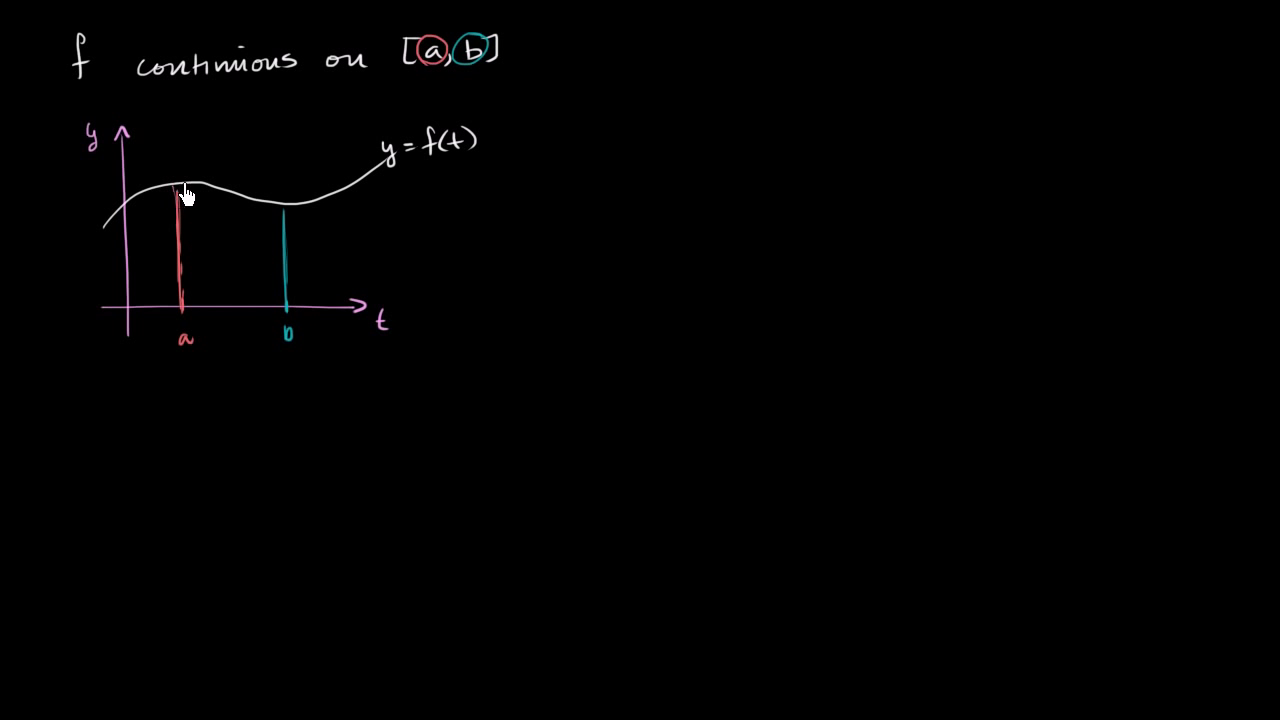 f continuous on [a, b]
y
y = f(t)
t
a
b